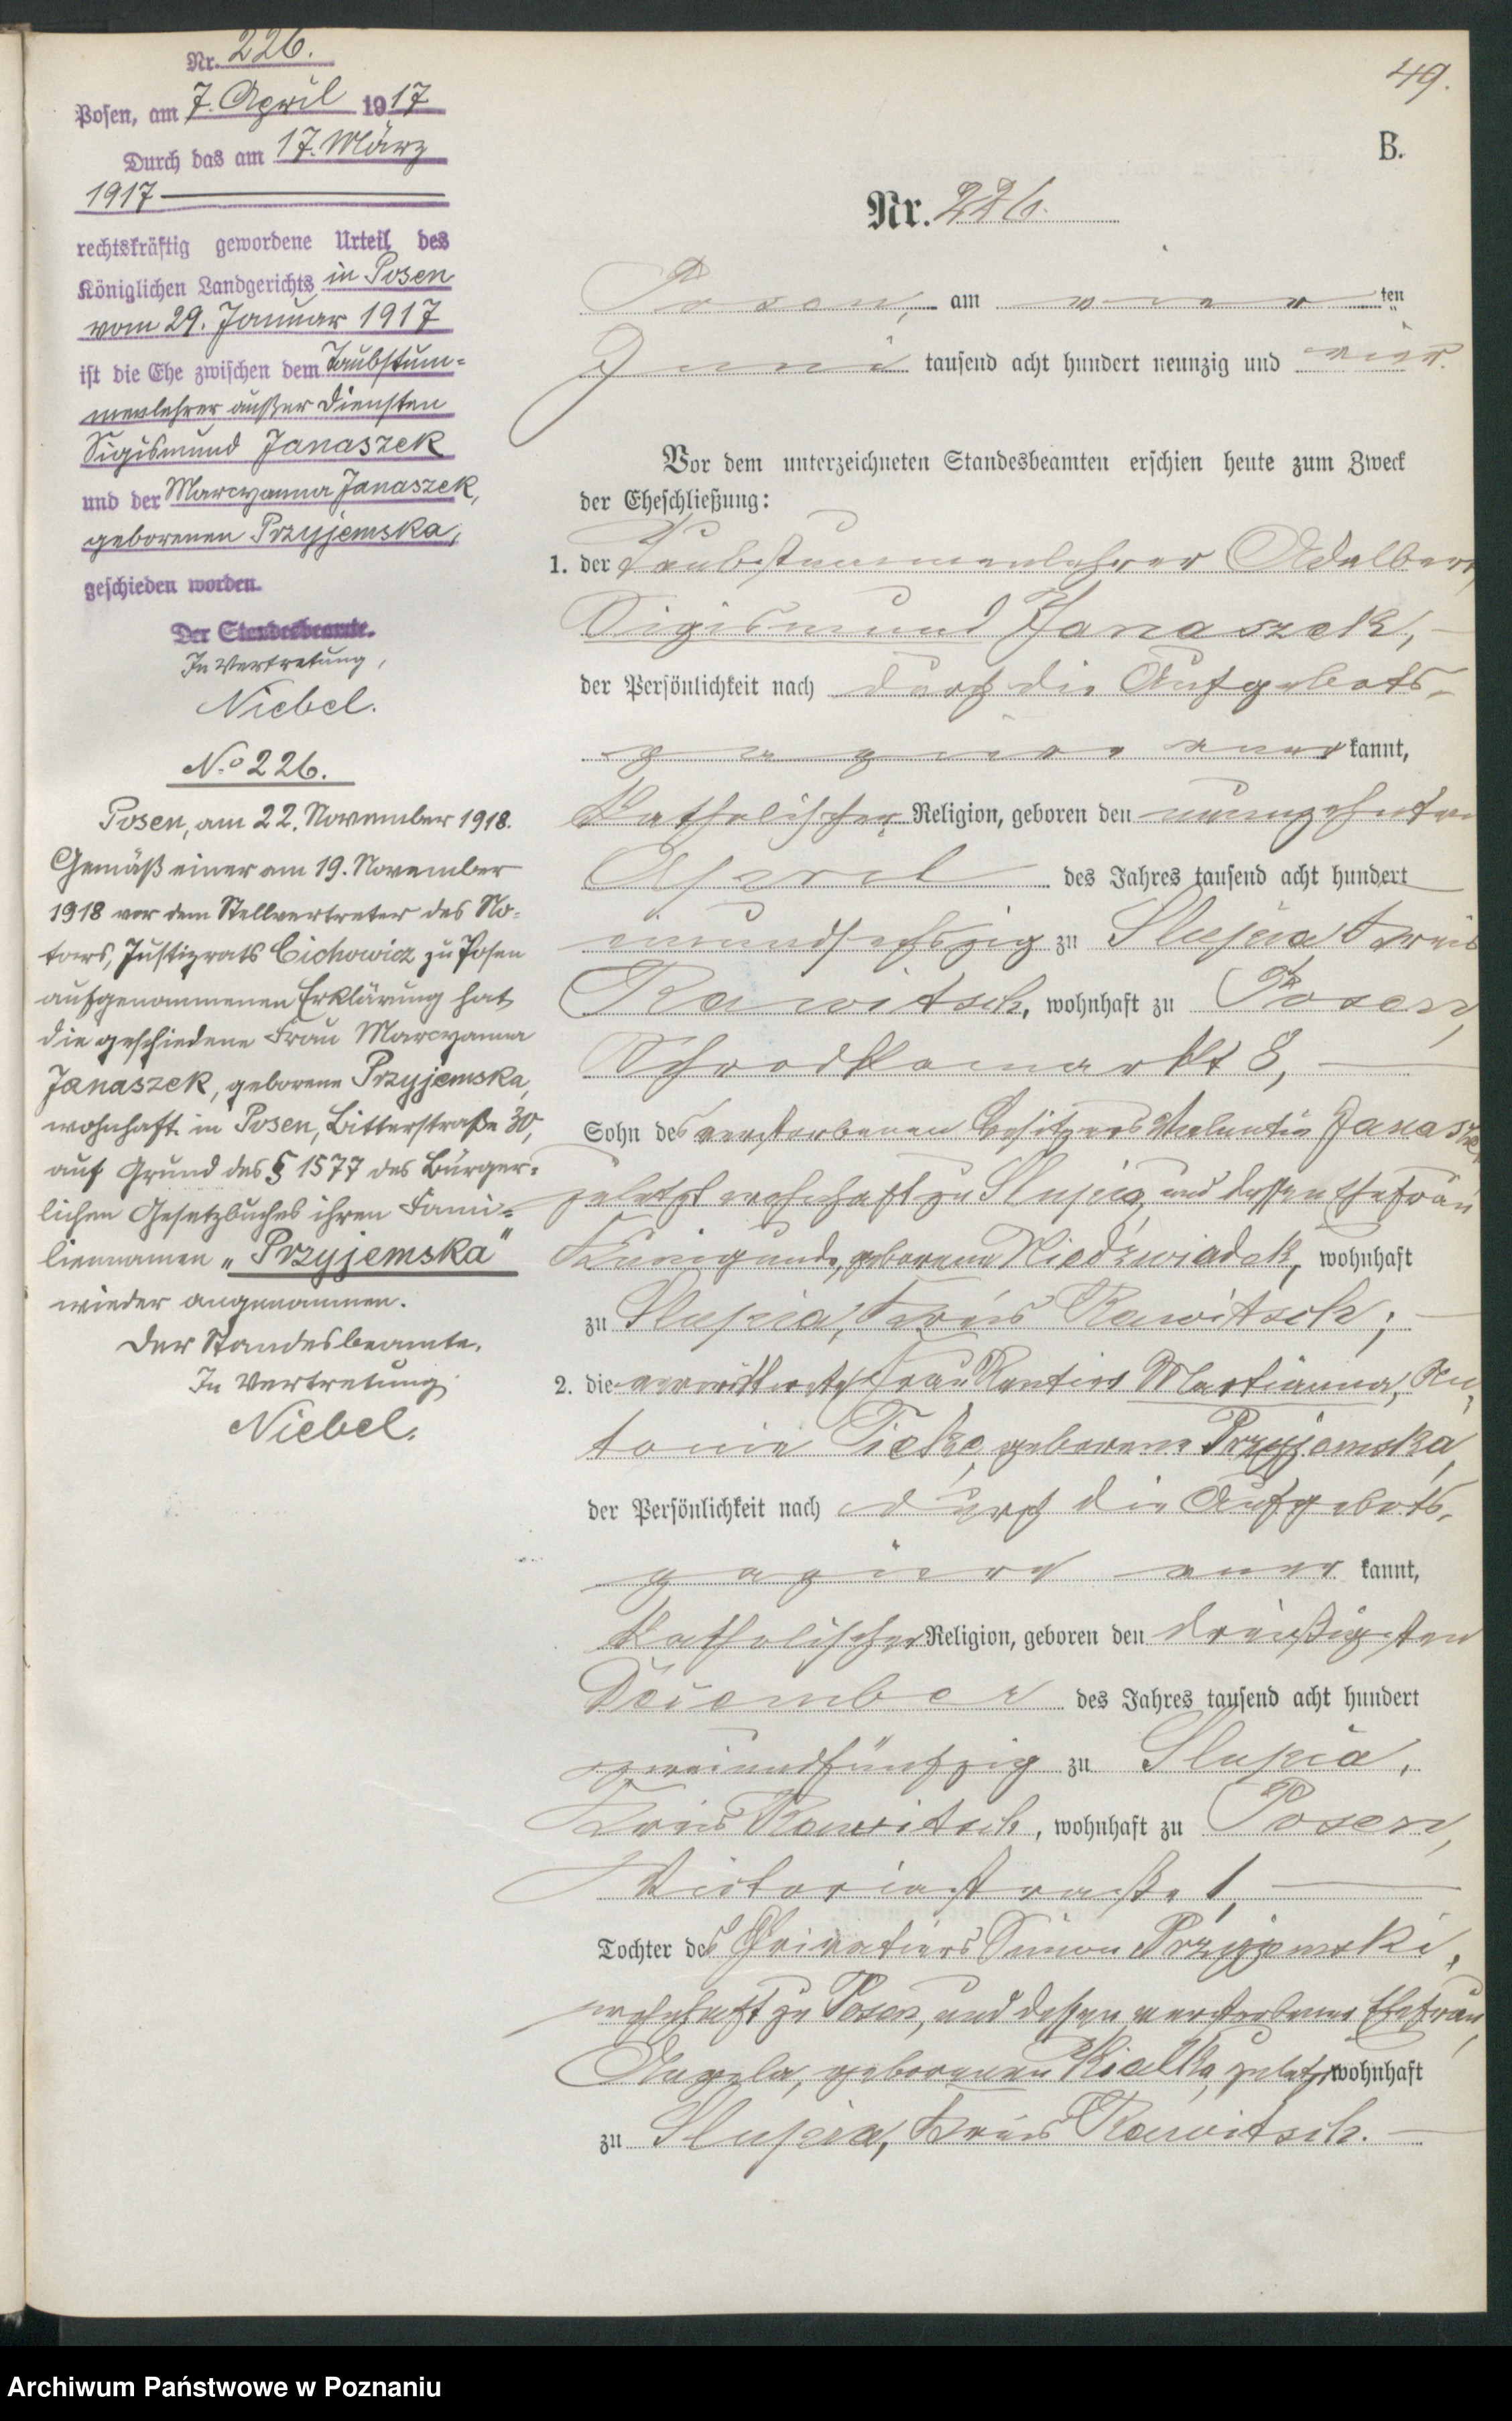 Nr. 226.
Posen, am 7. April 1917
Durch das am 17. März
1917
rechtskräftig gewordene Urteil des
Königlichen Landgerichts in Posen
vom 29. Januar 1917
ist die Ehe zwischen dem Taubstum-
menlehrer außer Diensten
Sigismund Janaszek
und der Marcyanna Janaszek,
geborenen Przyjemska,
geschieden worden.
Der Standesbeamte.
In Vertretung,
Niebel.
No 226.
Posen, am 22. November 1918.
Gemäß einer am 19. November
1918 vor dem Stellvertreter des No-
tars, Justizrats Cichowicz zu Posen
aufgenommenen Erklärung hat
die geschiedene Frau Marcyanna
Janaszek, geborene Przyjemska,
wohnhaft in Posen, Bitterstraße 30,
auf Grund des § 1577 des Bürger-
lichen Gesetzbuches ihren Fami-
liennamen „Przyjemska"
wieder angenommen.
Der Standesbeamte.
In Vertretung
Niebel.
49.
B.
Nr. 226.
Posen, am vier ten
Juni tausend acht hundert neunzig und vier.
Vor dem unterzeichneten Standesbeamten erschien heute zum Zweck
der Eheschließung:
1. der Taubstummenlehrer Adalbert
Sigismund Janaszek,
der Persönlichkeit nach durch die Aufgebots-
aner kannt,
katholischer Religion, geboren den neunzehnten
April des Jahres tausend acht hundert
einundsechszig zu Slupia Kreis
Rawitsch, wohnhaft zu Posen,
Schrodkamarkt 8,
Sohn des verstorbenen Besitzers Valentin Janaszek
zuletzt wohnhaft zu Slupia, und dessen Ehefrau
Kunigunde, geborene Niedzwiadek, wohnhaft
zu Slupia, Kreis Rawitsch;
2. die verwittwete Frau Rentier Martianna, An-
tonie geborene Przyjemska,
der Persönlichkeit nach durch die Aufgebots-
aner kannt,
katholischer Religion, geboren den dreißigsten
December des Jahres tausend acht hundert
zweiundfünfzig zu Slupia,
Kreis Rawitsch, wohnhaft zu Posen,
Victoriastraße 1,
Tochter des Privatiers Simon Przyjemski,
wohnhaft zu Posen, und dessen verstorbene Ehefrau,
Angela, geborenen zuletzt wohnhaft
zu Slupia, Kreis Rawitsch.
Archiwum Państwowe w Poznaniu